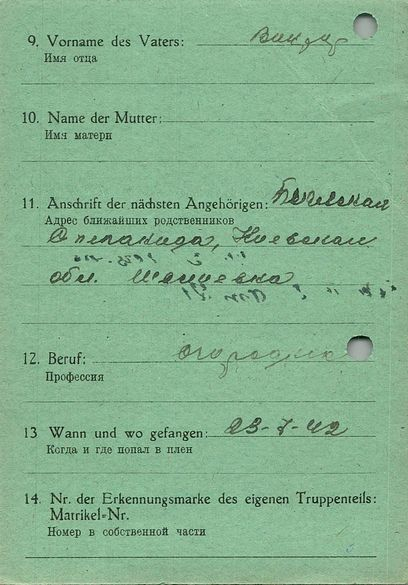 9. Vorname des Vaters:
Имя отца
10. Name der Mutter:
Имя матери
11. Anschrift der nächsten Angehörigen:
Адрес ближайших родственников
Киевская
обл.
12. Beruf:
Профессия
13 Wann und wo gefangen: 23-7-42
Когда и где попал в плен
14. Nr. der Erkennungsmarke des eigenen Truppenteils:
Matrikel-Nr.
Номер в собственной части